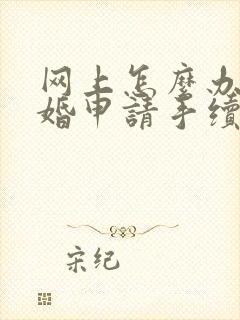 网上怎麽办
婚申請手續
宋纪